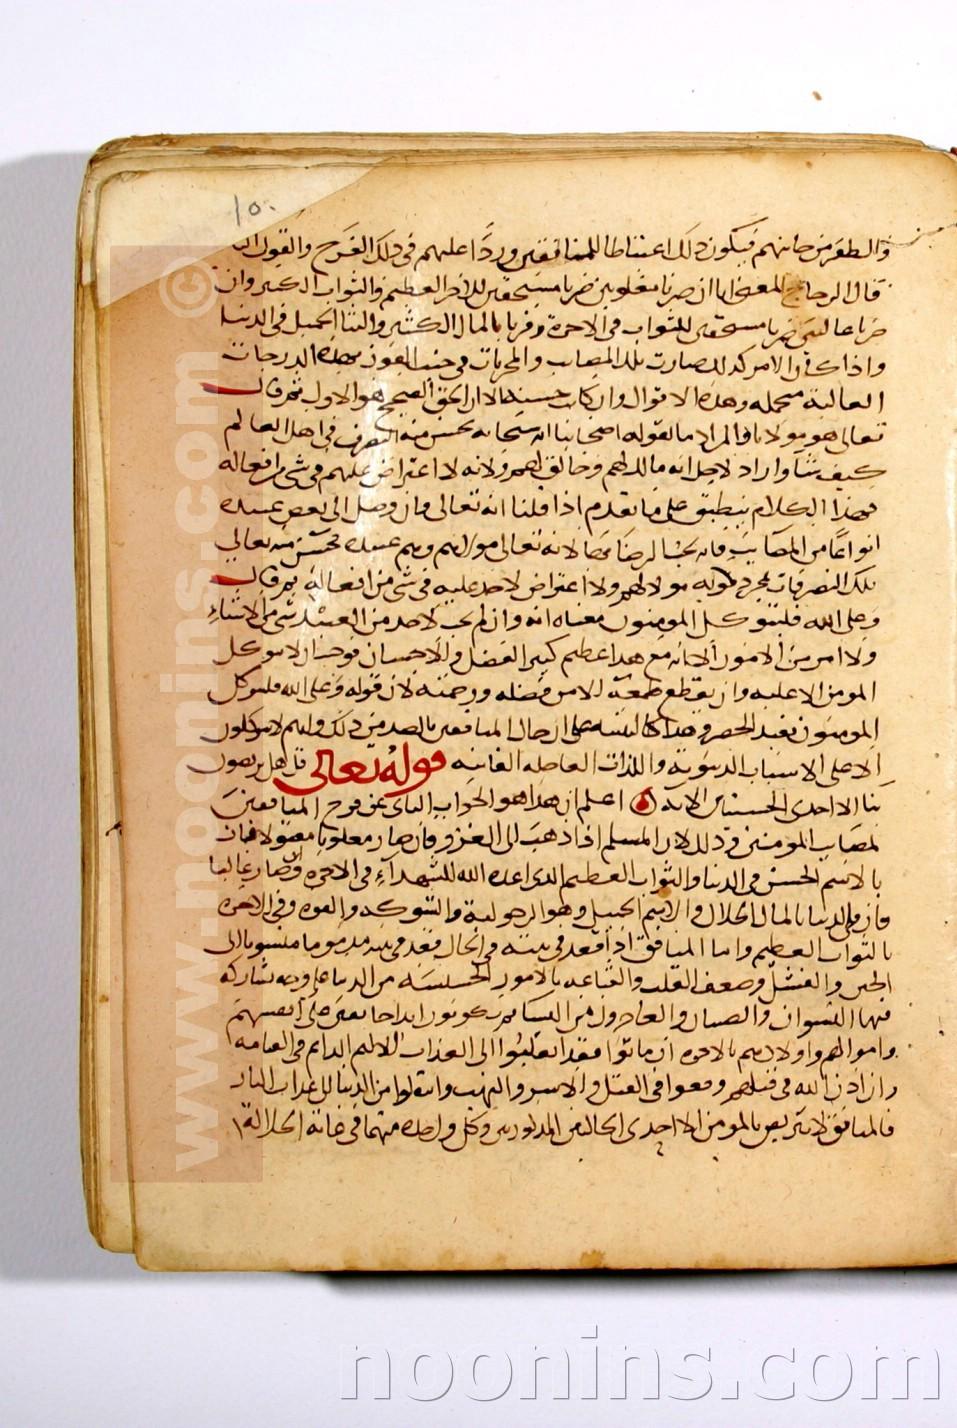 ١٥٠
والظفر من جانبهم فيكون ذلك اغتياظا للمنافقين وردا عليهم في ذلك الفرح والقول
قال الزجاج المعنى انا ان صرنا مغلوبين صرنا مستحقين للاجر العظيم والثواب الكثير وان
صرنا غالبين صرنا مستحقين للثواب في الاخرة وفزنا بالمال الكثير والثنا الجميل في الدنيا
واذا كان الامر كذلك صارت تلك المصائب والمحزنات في جنب الفوز بهذه الدرجات
العالية متحملة وهذه الاقوال وان كانت حسنة الا ان الحق الصحيح هو الاول ثم قال
تعالى هو مولانا والمراد ما نقوله اصحابنا انه سبحانه يحسن منه التصرف في اهل العالم
كيف شآ واراد لاجل انه مالك لهم وخالق لهم ولانه لا اعتراض عليهم في شي من افعاله
فهذا الكلام ينطبق على ما تقدم اذا قلنا انه تعالى وان وصل الى بعض عبيده
انواعا من المصائب فانه يجب الرضا بها لانه تعالى مولاهم وهم عبيده فحسن منه تعالى
تلك التصرفات بمجرد كونه مولا لهم ولا اعتراض لاحد عليه في شي من افعاله ثم قال
وعلى الله فليتوكل المومنون معناه انه وان لم يجب لاحد من العبيد شي من الاشياء
ولا امر من الامور الا انه مع هذا عظيم كثير الفضل والاحسان فوجب ان لا يتوكل
المومن الا عليه وان يقطع طمعه الا من فضله ورحمته لان قوله وعلى الله فليتوكل
المومنون يفيد الحصر وهذا كالتنبيه على ان حال المنافقين بالضد من ذلك وانهم لا يتوكلون
الا على الاسباب الدنيوية واللذات العاجلة الفانية قوله تعالى قل هل تربصون
بنا الا احدى الحسنيين الاية اعلم ان هذا هو الجواب الثاني عن فرح المنافقين
بمصائب المومنين وذلك لان المسلم اذا ذهب الى الغزو فان صار مغلوبا مقتولا فاز
بالاسم الحسن في الدنيا والثواب العظيم الذي اعده الله للشهدآء في الاخرة وان صار غالبا
فاز في الدنيا بالمال الحلال والاسم الجميل وهو الرجولية والشوكه والقوه وفي الاخرة
بالثواب العظيم واما المنافق اذا قعد في بيته في الحال فقعد في بيته مذموما منسوبا الى
الجبن والفشل وضعف القلب والقناعه بالامور الخسيسه من الدنيا على وجه يشاركه
فيها النسوان والصبيان والعاجزون من النسا ثم يكونون ابدا خائفين على انفسهم
واموالهم واولادهم وفي الاخره ان ماتوا فقد انقلبوا الى العذاب الاليم الدايم في القيامه
وان اذن الله في قتلهم وقعوا في القتل والاسر والنهب وانتقلوا من الدنيا الى عذاب النار
فالمنافق لا يتربص بالمومن الا احدى الحالتين المذكورتين وكل واحده منهما في غاية الجلالة
www.noonins.com ©
noonins.com